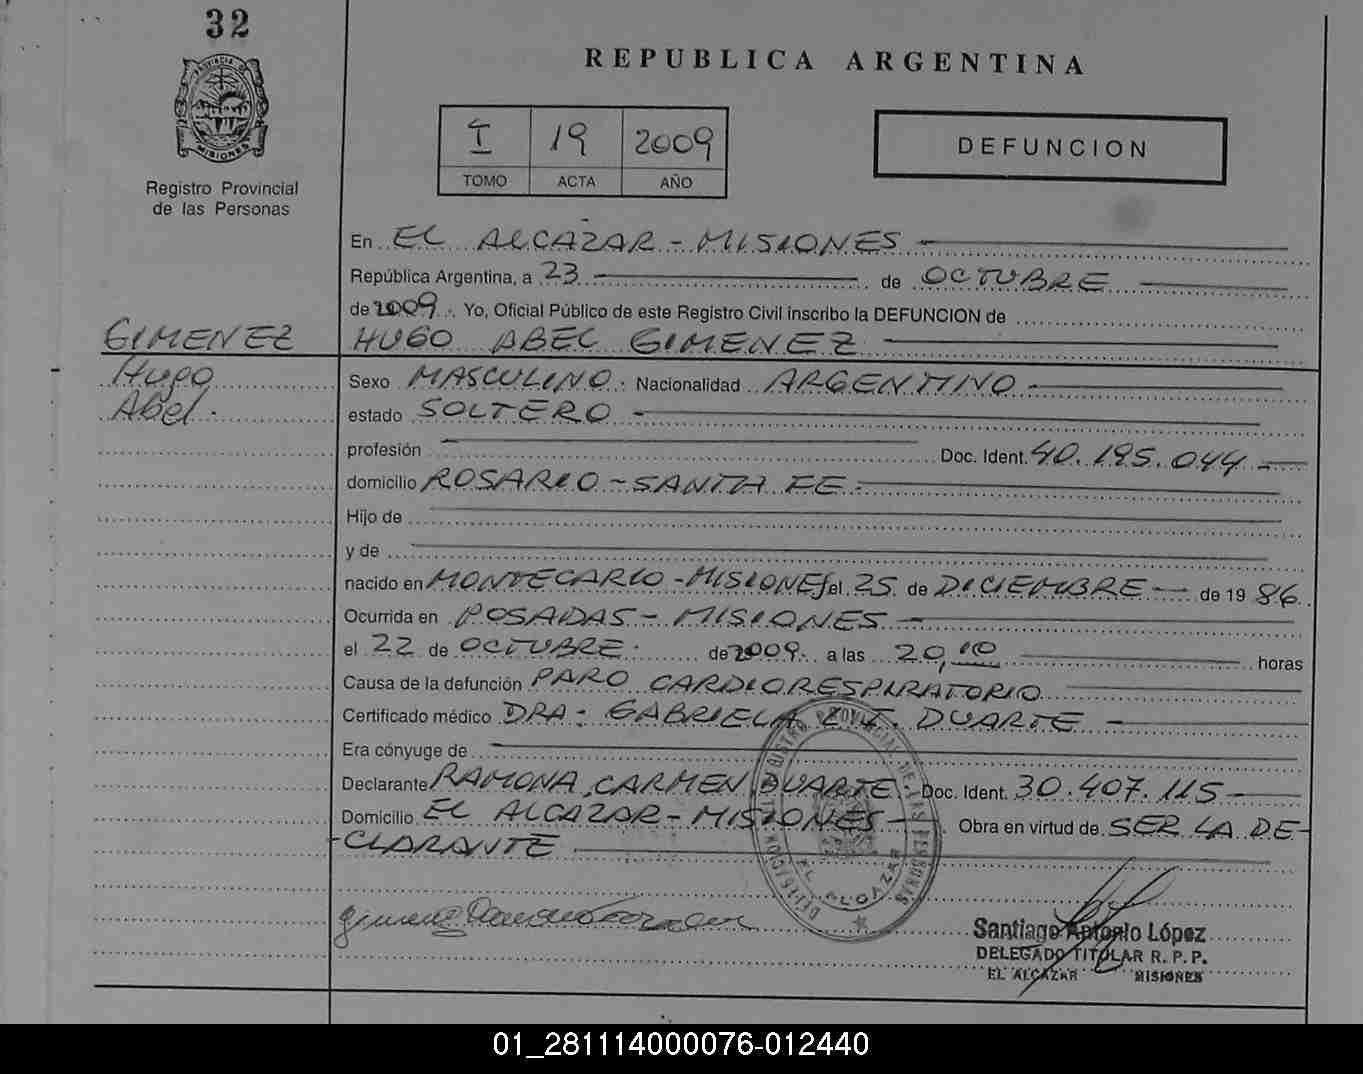 32
REPUBLICA ARGENTINA
PROVINCIA D
MISIONES
Registro Provincial
de las Personas
I 19 2009
TOMO ACTA AÑO
DEFUNCION
En EL ALCAZAR - MISIONES -
República Argentina, a 23 de OCTUBRE
de 2009. Yo, Oficial Público de este Registro Civil inscribo la DEFUNCION de
GIMENEZ HUGO ABEL GIMENEZ
Hugo
Abel.
Sexo MASCULINO. Nacionalidad ARGENTINO
estado SOLTERO -
profesión Doc. Ident. 40.195.044
domicilio ROSARIO - SANTA FE -
Hijo de
y de
nacido en MONTECARLO - MISIONES el 25 de DICIEMBRE de 19 86
Ocurrida en POSADAS - MISIONES -
el 22 de OCTUBRE. de 2009. a las 20,10 horas
Causa de la defunción PARO CARDIORESPIRATORIO
Certificado médico DRA: GABRIELA E. I. DUARTE -
Era cónyuge de
Declarante RAMONA CARMEN DUARTE. - Doc. Ident. 30.407.115 -
Domicilio EL ALCAZAR - MISIONES - Obra en virtud de SER LA DE-
-CLARANTE
EL ALCAZAR
Santiago Antonio López
DELEGADO TITULAR R. P. P.
EL ALCAZAR MISIONES
01_281114000076-012440